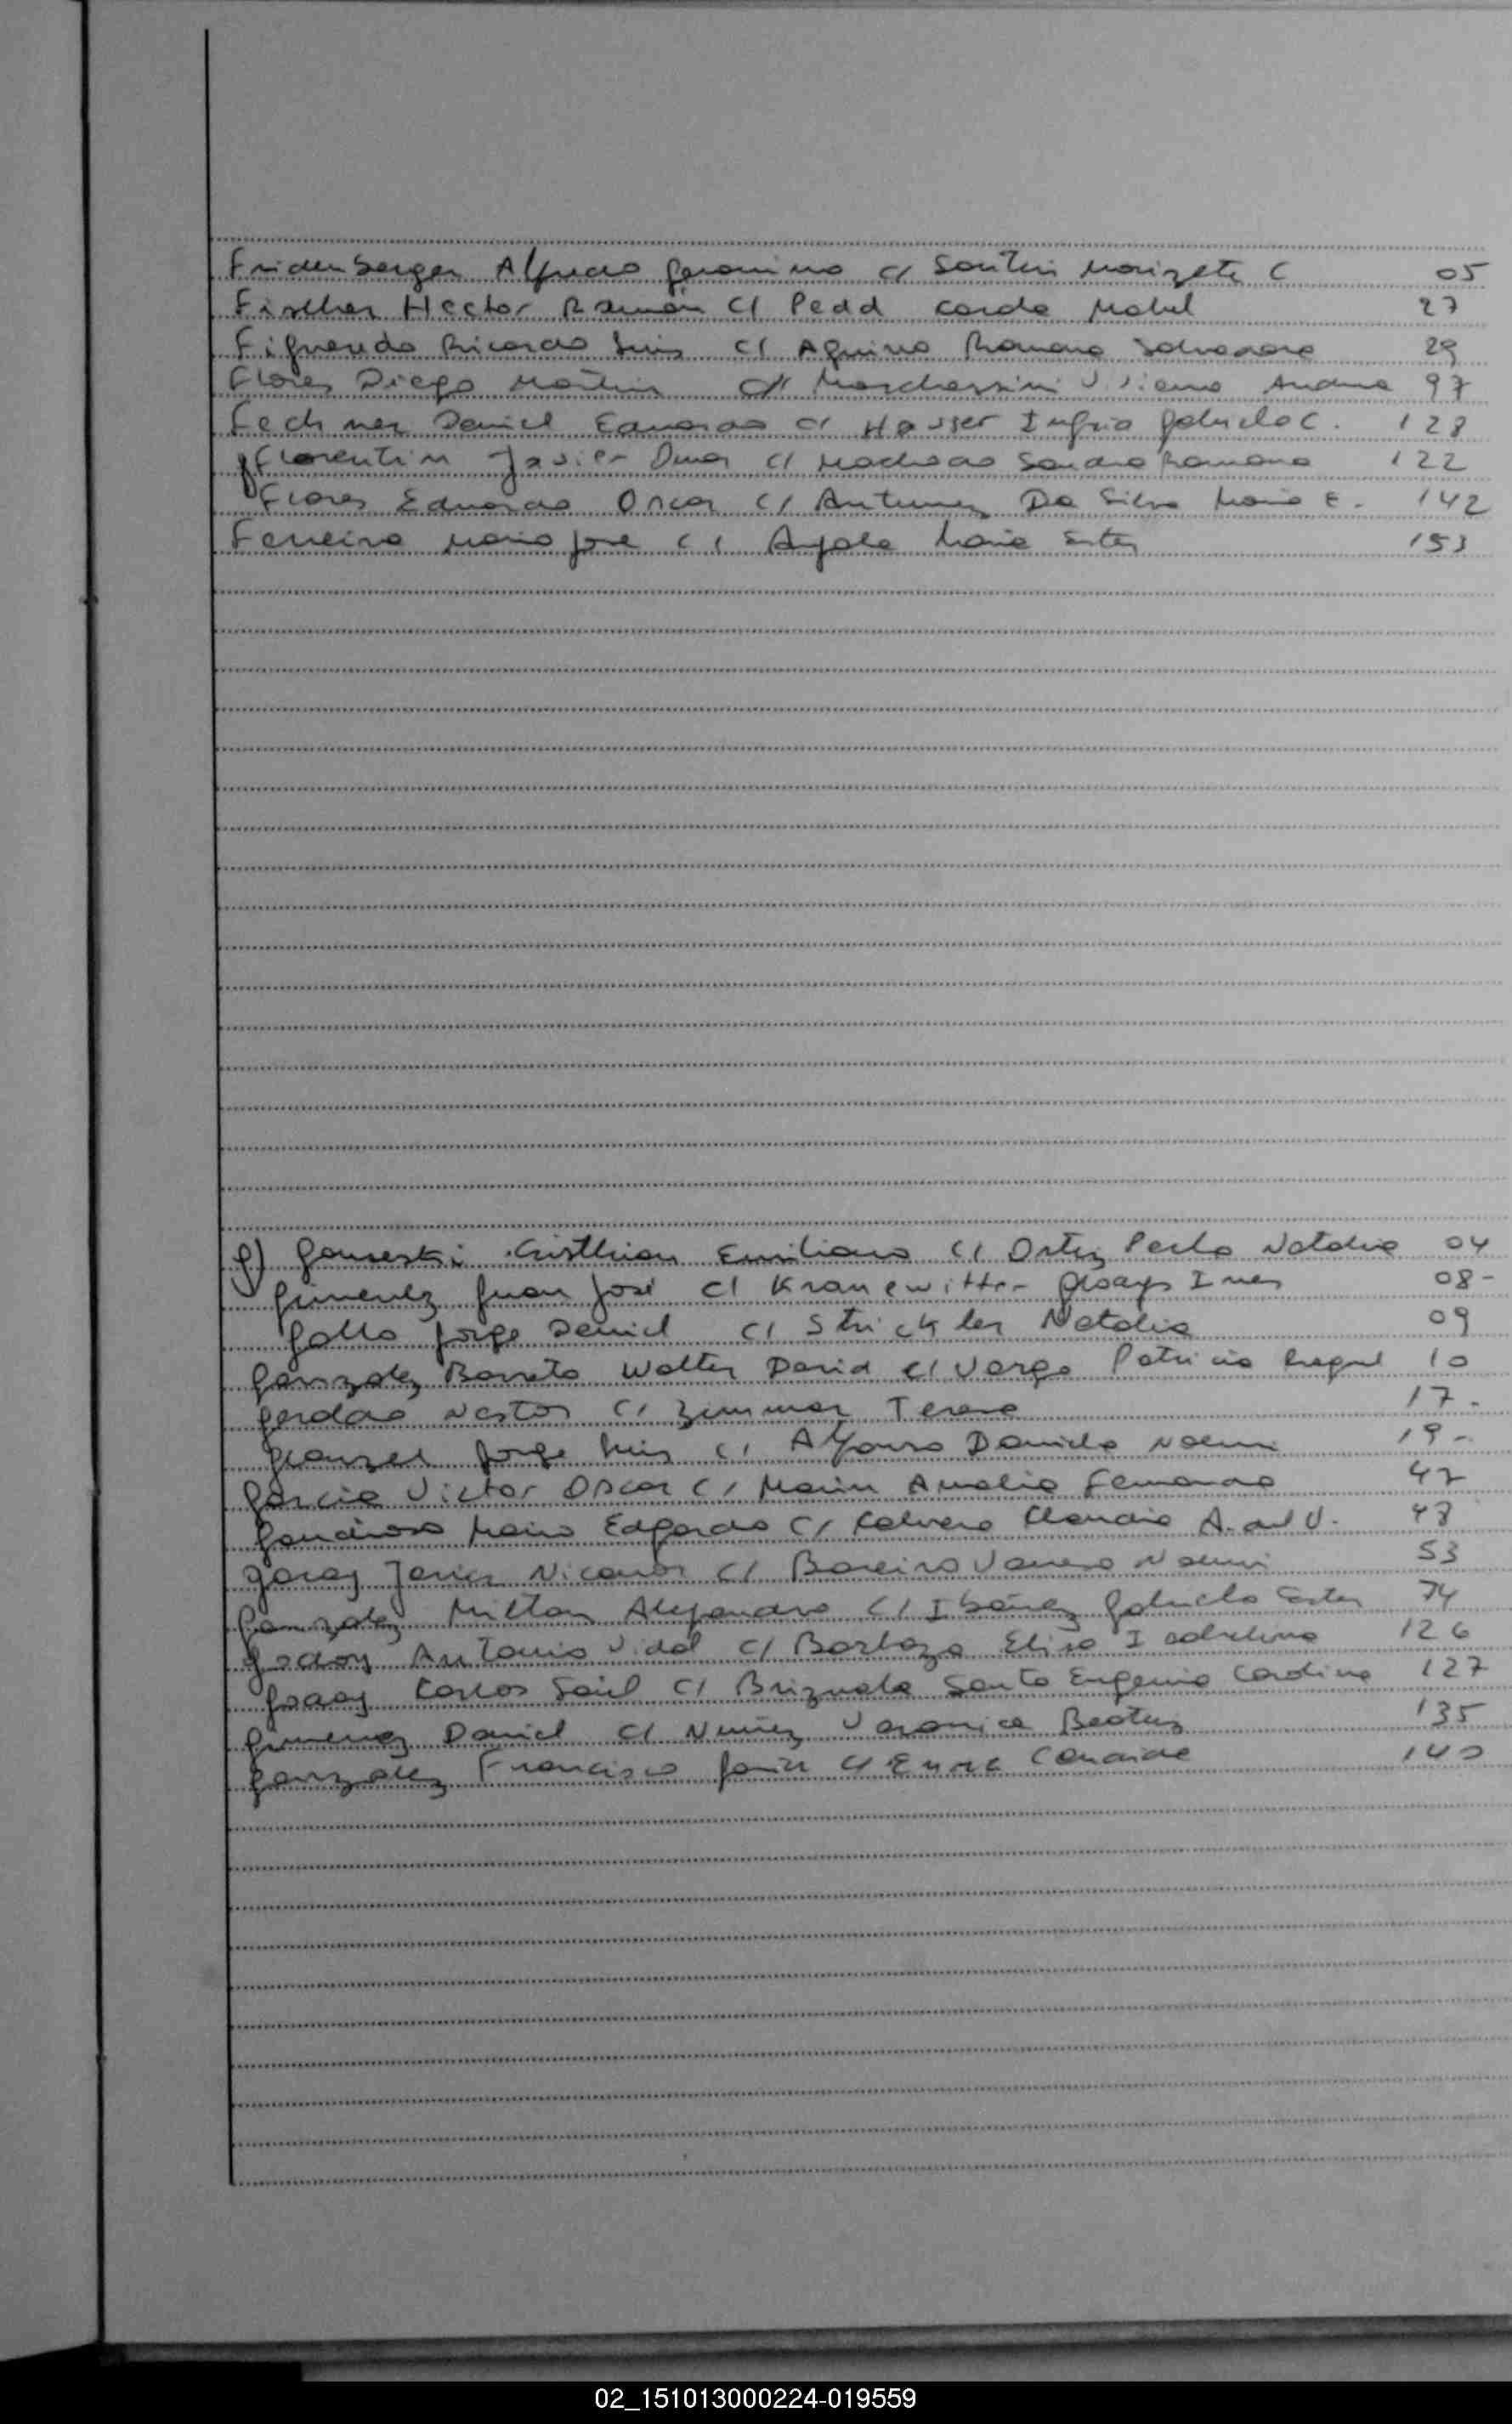 Fridenberger Alfredo Geronimo c/ Santin Marizete C 05
Fischer Hector Ramón C/ Pedd Carda Mabel 27
Figueredo Ricardo Luis C/ Aquino Romano 29
Flores Diego Martin C/ Viviana Andrea 97
Fechner Daniel Eduardo C/ Hausser Ingria Gabriela C. 128
Florentin Javier Omar C/ Machado Sandra Ramona 122
Flores Eduardo Oscar C/ Antunez Da Silva Maria E. 142
Ferreira Mario Jose C/ Ayala Maria Ester 153
G) Cristhian Emiliano C/ Ortiz Perla Natalia 04
Gimenez Juan José C/ Kranewitter Gladys Ines 08-
Gallo Jorge Daniel C/ Strickler Natalia 09
Gonzalez Barreto Walter David C/ Varga Patricia Raquel 10
Nestor C/ Zimmer Teresa 17.
Jorge Luis C/ Alfonso Daniela Noemi 19-
Garcia Victor Oscar C/ Marin Analia Fernanda 47
Mario Edgardo C/ Claudia A. del V. 48
Garay Javier Nicanor C/ Bareiro Vanesa Noemi 53
Gonzalez Milton Alejandro C/ Ibáñez Gabriela Ester 74
Godoy Antonio Vidal C/ Barboza Elisa 126
Godoy Carlos Saúl C/ Brizuela Santa Eugenia Carolina 127
Gimenez Daniel C/ Nuñez Veronica Beatriz 135
Gonzalez Francisco Javier C/ 140
02_151013000224-019559